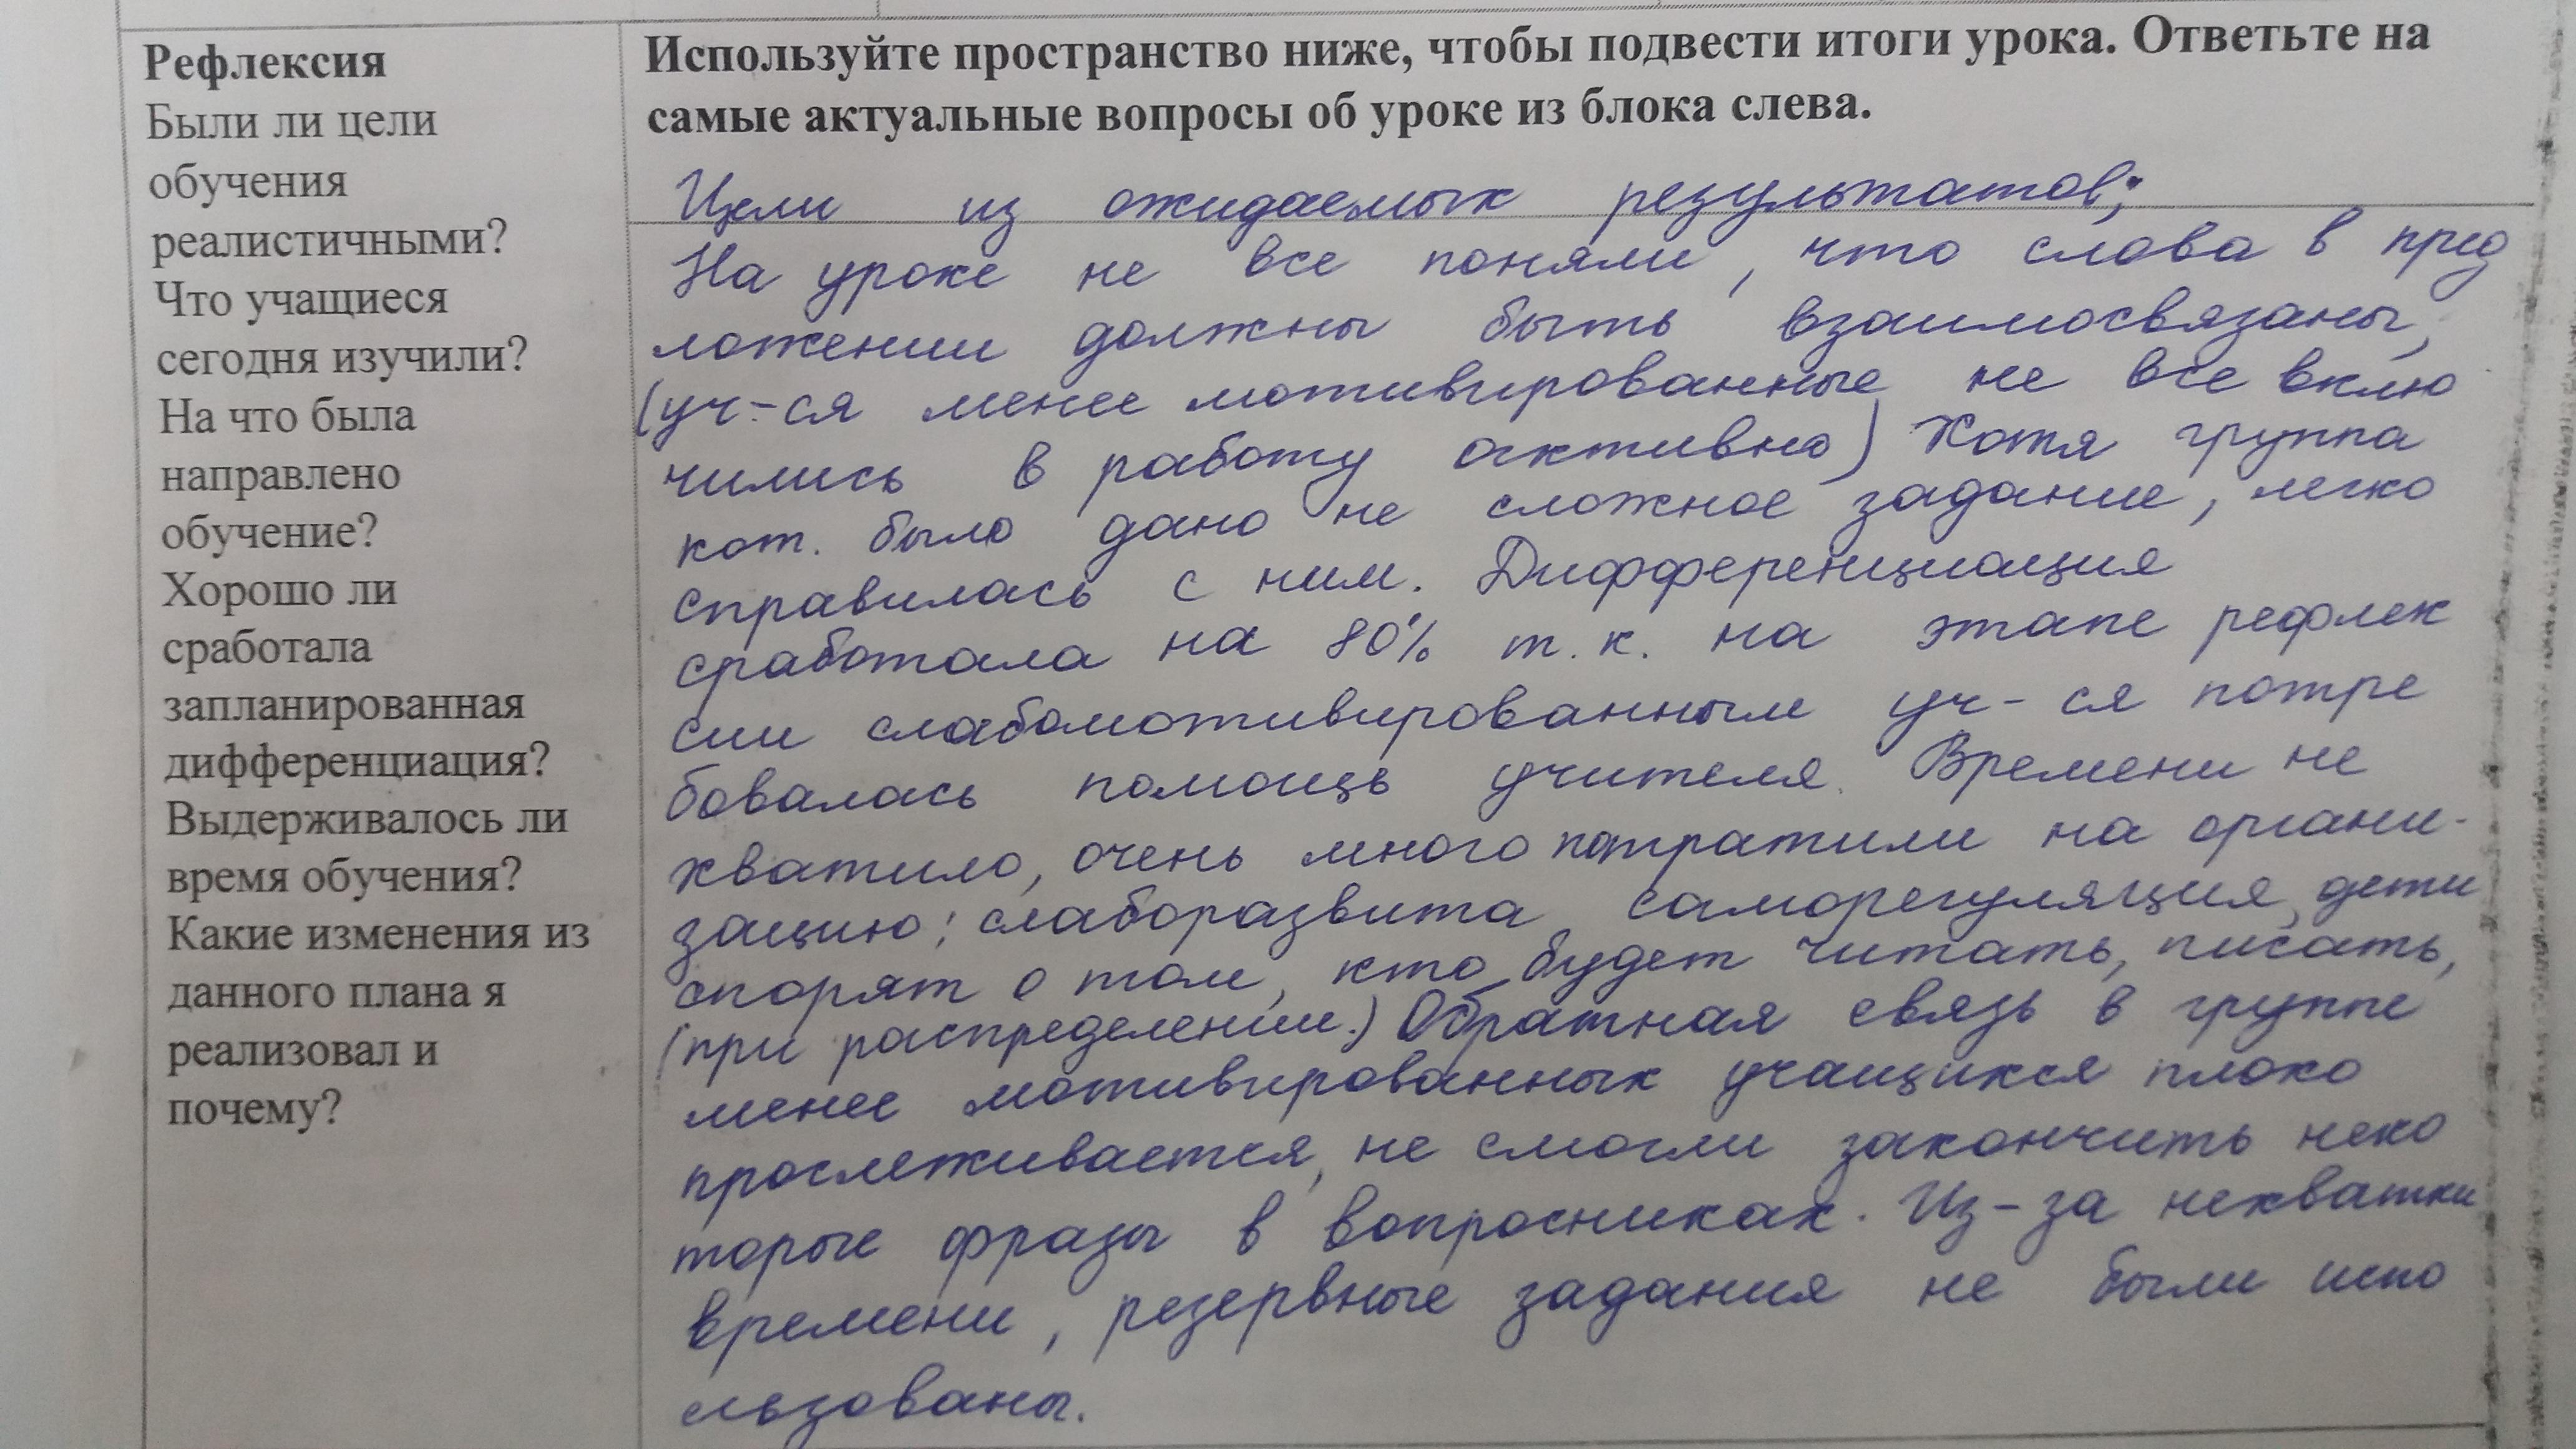 Рефлексия
Были ли цели
обучения
реалистичными?
Что учащиеся
сегодня изучили?
На что была
направлено
обучение?
Хорошо ли
сработала
запланированная
дифференциация?
Выдерживалось ли
время обучения?
Какие изменения из
данного плана я
реализовал и
почему?
Используйте пространство ниже, чтобы подвести итоги урока. Ответьте на
самые актуальные вопросы об уроке из блока слева.
Цели из ожидаемых результатов;
На уроке не все поняли, что слова в пред
ложении должны быть взаимосвязаны,
(уч-ся менее мотивированные не все вклю
чились в работу активно) Хотя группа
кот. было дано не сложное задание, легко
справилась с ним. Дифференциация
сработала на 80% т.к. на этапе рефлек
сии слабомотивированным уч-ся потре
бовалась помощь учителя. Времени не
хватило, очень много потратили на органи-
зацию; слаборазвита саморегуляция, дети
спорят о том, кто будет читать, писать,
(при распределении.) Обратная связь в группе
менее мотивированных учащихся плохо
прослеживается, не смогли закончить неко
торые фразы в вопросниках. Из-за нехватки
времени, резервные задания не были испо
льзованы.